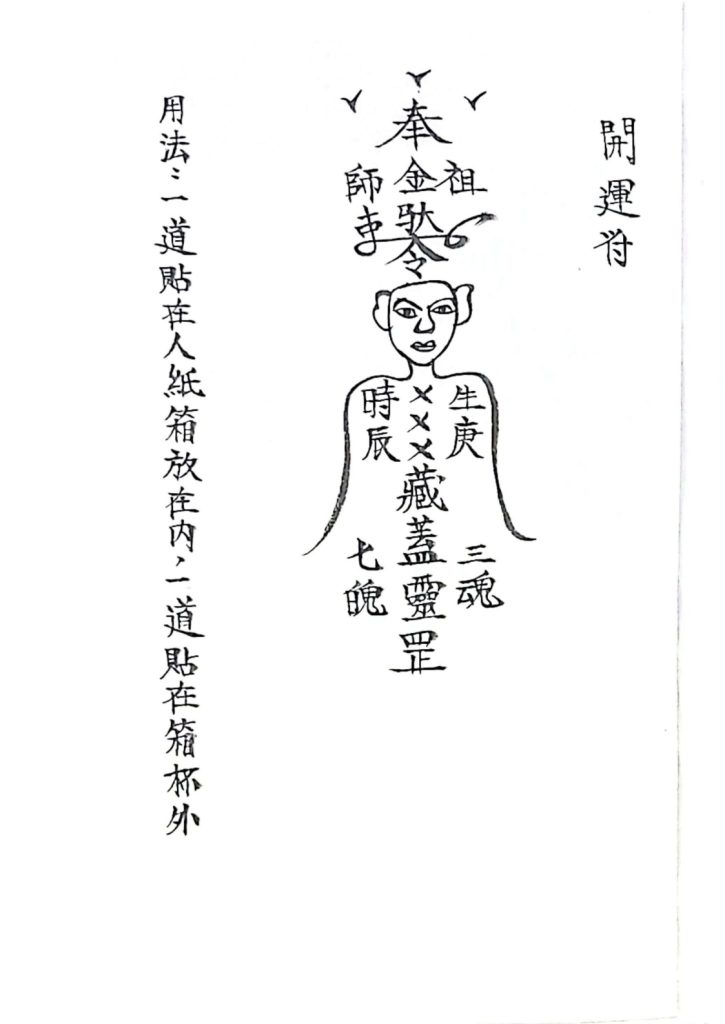 開運符
奉金馱令
祖師
生庚
×××
時辰
藏蓋靈罡
三魂
七魄
用法：一道貼在人紙箱放在内，一道貼在箱杯外